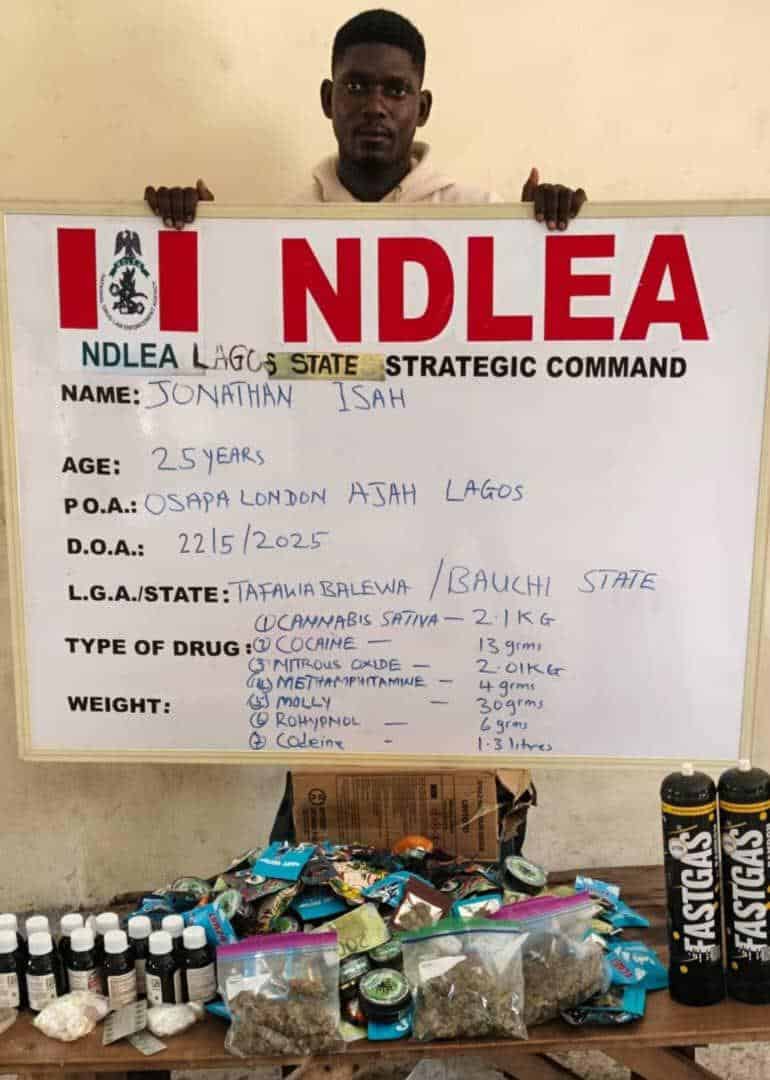 NDLEA
NDLEA LAGOS STATE STRATEGIC COMMAND
NAME: JONATHAN ISAH
AGE: 25 YEARS
P.O.A.: OSAPA LONDON AJAH LAGOS
D.O.A.: 22/5/2025
L.G.A./STATE: TAFAWABALEWA / BAUCHI STATE
TYPE OF DRUG:
(1) CANNABIS SATIVA — 2.1KG
(2) COCAINE — 13 grms
(3) NITROUS OXIDE — 2.01KG
(4) METHAMPHITAMINE — 4 grms
(5) MOLLY — 30 grms
WEIGHT:
(6) ROHYPNOL — 6 grms
(7) Codeine - 1.3 litres
FASTGAS
FASTGAS